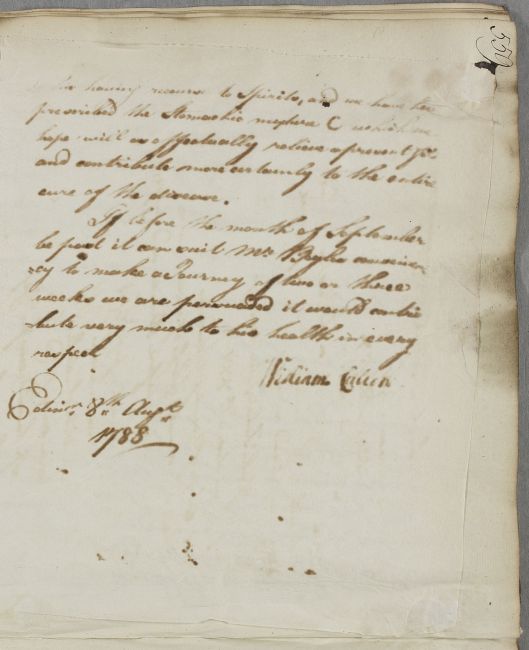 for having recourse to Spirits, and we have here
prescribed the Stomachic mixture C which we
hope will as effectually relieve a present fit
and contribute more certainly to the entire
cure of the disease.
If before the month of September
be past it can suit Mr convenien-
-cy to make a Journey of two or three
weeks we are persuaded it would contri
-bute very much to his health in every
respect
William Cullen
Edinr. 8th Augt
1788